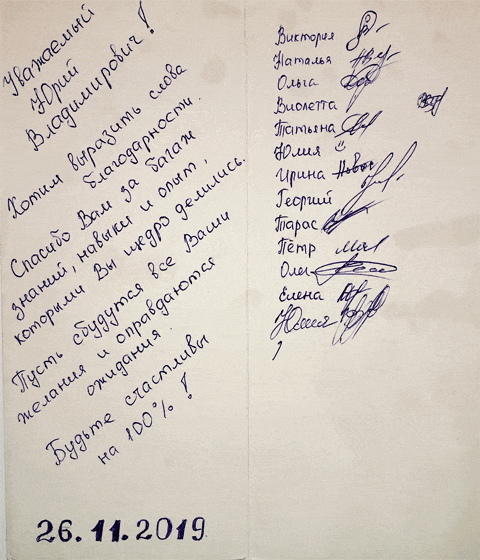 Уважаемый
Юрий
Владимирович!
Хотим выразить слова
благодарности.
Спасибо Вам за багаж
знаний, навыки и опыт,
которыми Вы щедро делились.
Пусть сбудутся все Ваши
желания и оправдаются
ожидания.
Будьте счастливы
на 100%!
26.11.2019
Виктория
Наталья
Ольга
Виолетта
Татьяна
Юлия
Ирина
Георгий
Тарас
Пётр
Олег
Елена
Юлия